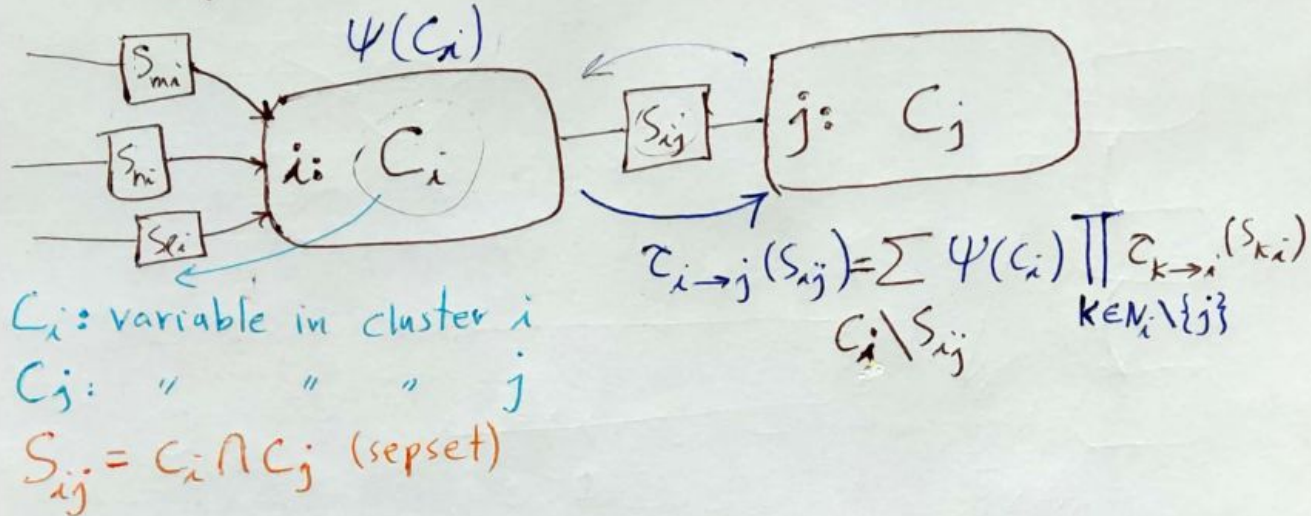 ψ(C_i)
S_mi
S_ni
S_li
i: C_i
S_ij
j: C_j
τ_{i→j}(S_ij) = ∑_{C_i\S_ij} ψ(C_i) ∏_{k∈N_i\{j}} τ_{k→i}(S_ki)
C_i: variable in cluster i
C_j: " " " j
S_ij = C_i ∩ C_j (sepset)